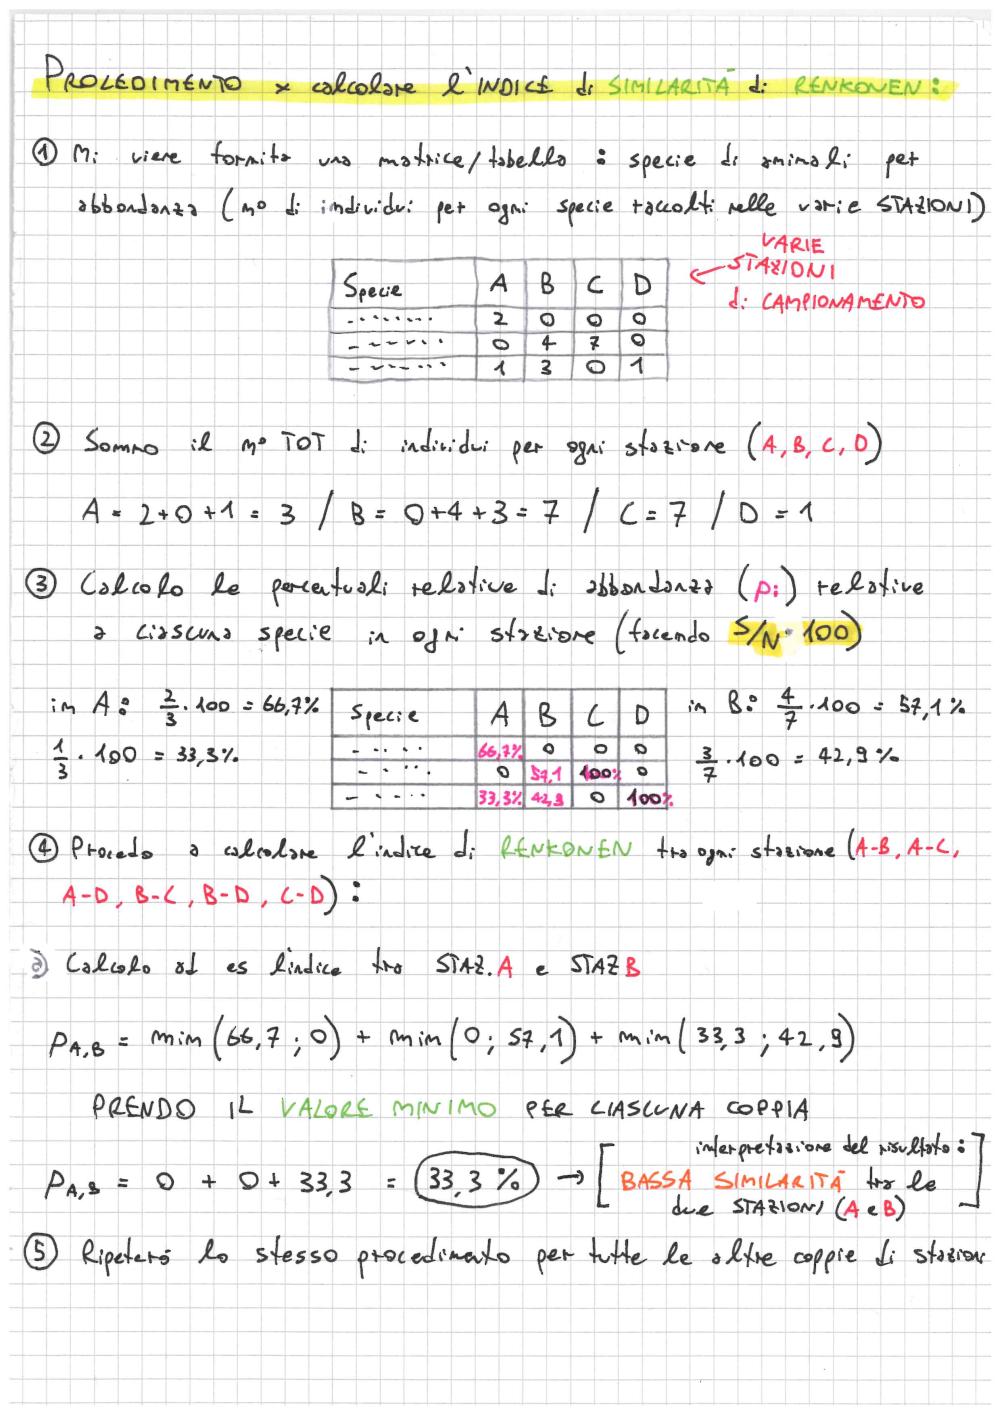 PROCEDIMENTO x calcolare l'INDICE di SIMILARITÀ di RENKONEN:
① Mi viene fornita una matrice/tabella: specie di animali per
abbondanza (n° di individui per ogni specie raccolti nelle varie STAZIONI)
VARIE
STAZIONI
di CAMPIONAMENTO
Specie A B C D
-------- 2 0 0 0
-------- 0 4 7 0
-------- 1 3 0 1
② Sommo il n° TOT di individui per ogni stazione (A, B, C, D)
A = 2+0+1 = 3 / B = 0+4+3 = 7 / C = 7 / D = 1
③ Calcolo le percentuali relative di abbondanza (pi) relative
a ciascuna specie in ogni stazione (facendo S/N · 100)
in A: 2/3 · 100 = 66,7%
1/3 · 100 = 33,3%
Specie A B C D
------ 66,7% 0 0 0
------ 0 57,1 100% 0
------ 33,3% 42,9 0 100%
in B: 4/7 · 100 = 57,1%
3/7 · 100 = 42,9%
④ Procedo a calcolare l'indice di RENKONEN tra ogni stazione (A-B, A-C,
A-D, B-C, B-D, C-D):
a) Calcolo ad es l'indice tra STAZ. A e STAZ B
PA,B = min (66,7 ; 0) + min (0 ; 57,1) + min (33,3 ; 42,9)
PRENDO IL VALORE MINIMO PER CIASCUNA COPPIA
PA,B = 0 + 0 + 33,3 = 33,3% → [interpretazione del risultato:
BASSA SIMILARITÀ tra le
due STAZIONI (A e B)]
⑤ Ripeterò lo stesso procedimento per tutte le altre coppie di stazioni